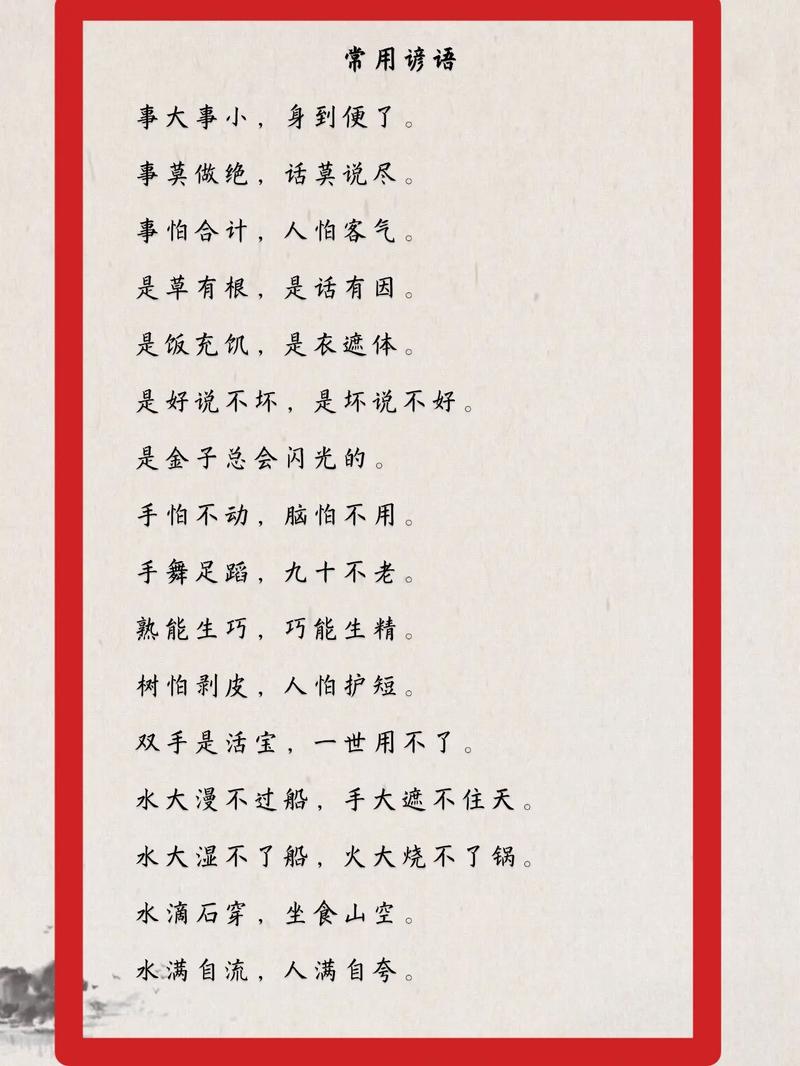 常用谚语
事大事小，身到便了。
事莫做绝，话莫说尽。
事怕合计，人怕客气。
是草有根，是话有因。
是饭充饥，是衣遮体。
是好说不坏，是坏说不好。
是金子总会闪光的。
手怕不动，脑怕不用。
手舞足蹈，九十不老。
熟能生巧，巧能生精。
树怕剥皮，人怕护短。
双手是活宝，一世用不了。
水大漫不过船，手大遮不住天。
水大湿不了船，火大烧不了锅。
水滴石穿，坐食山空。
水满自流，人满自夸。